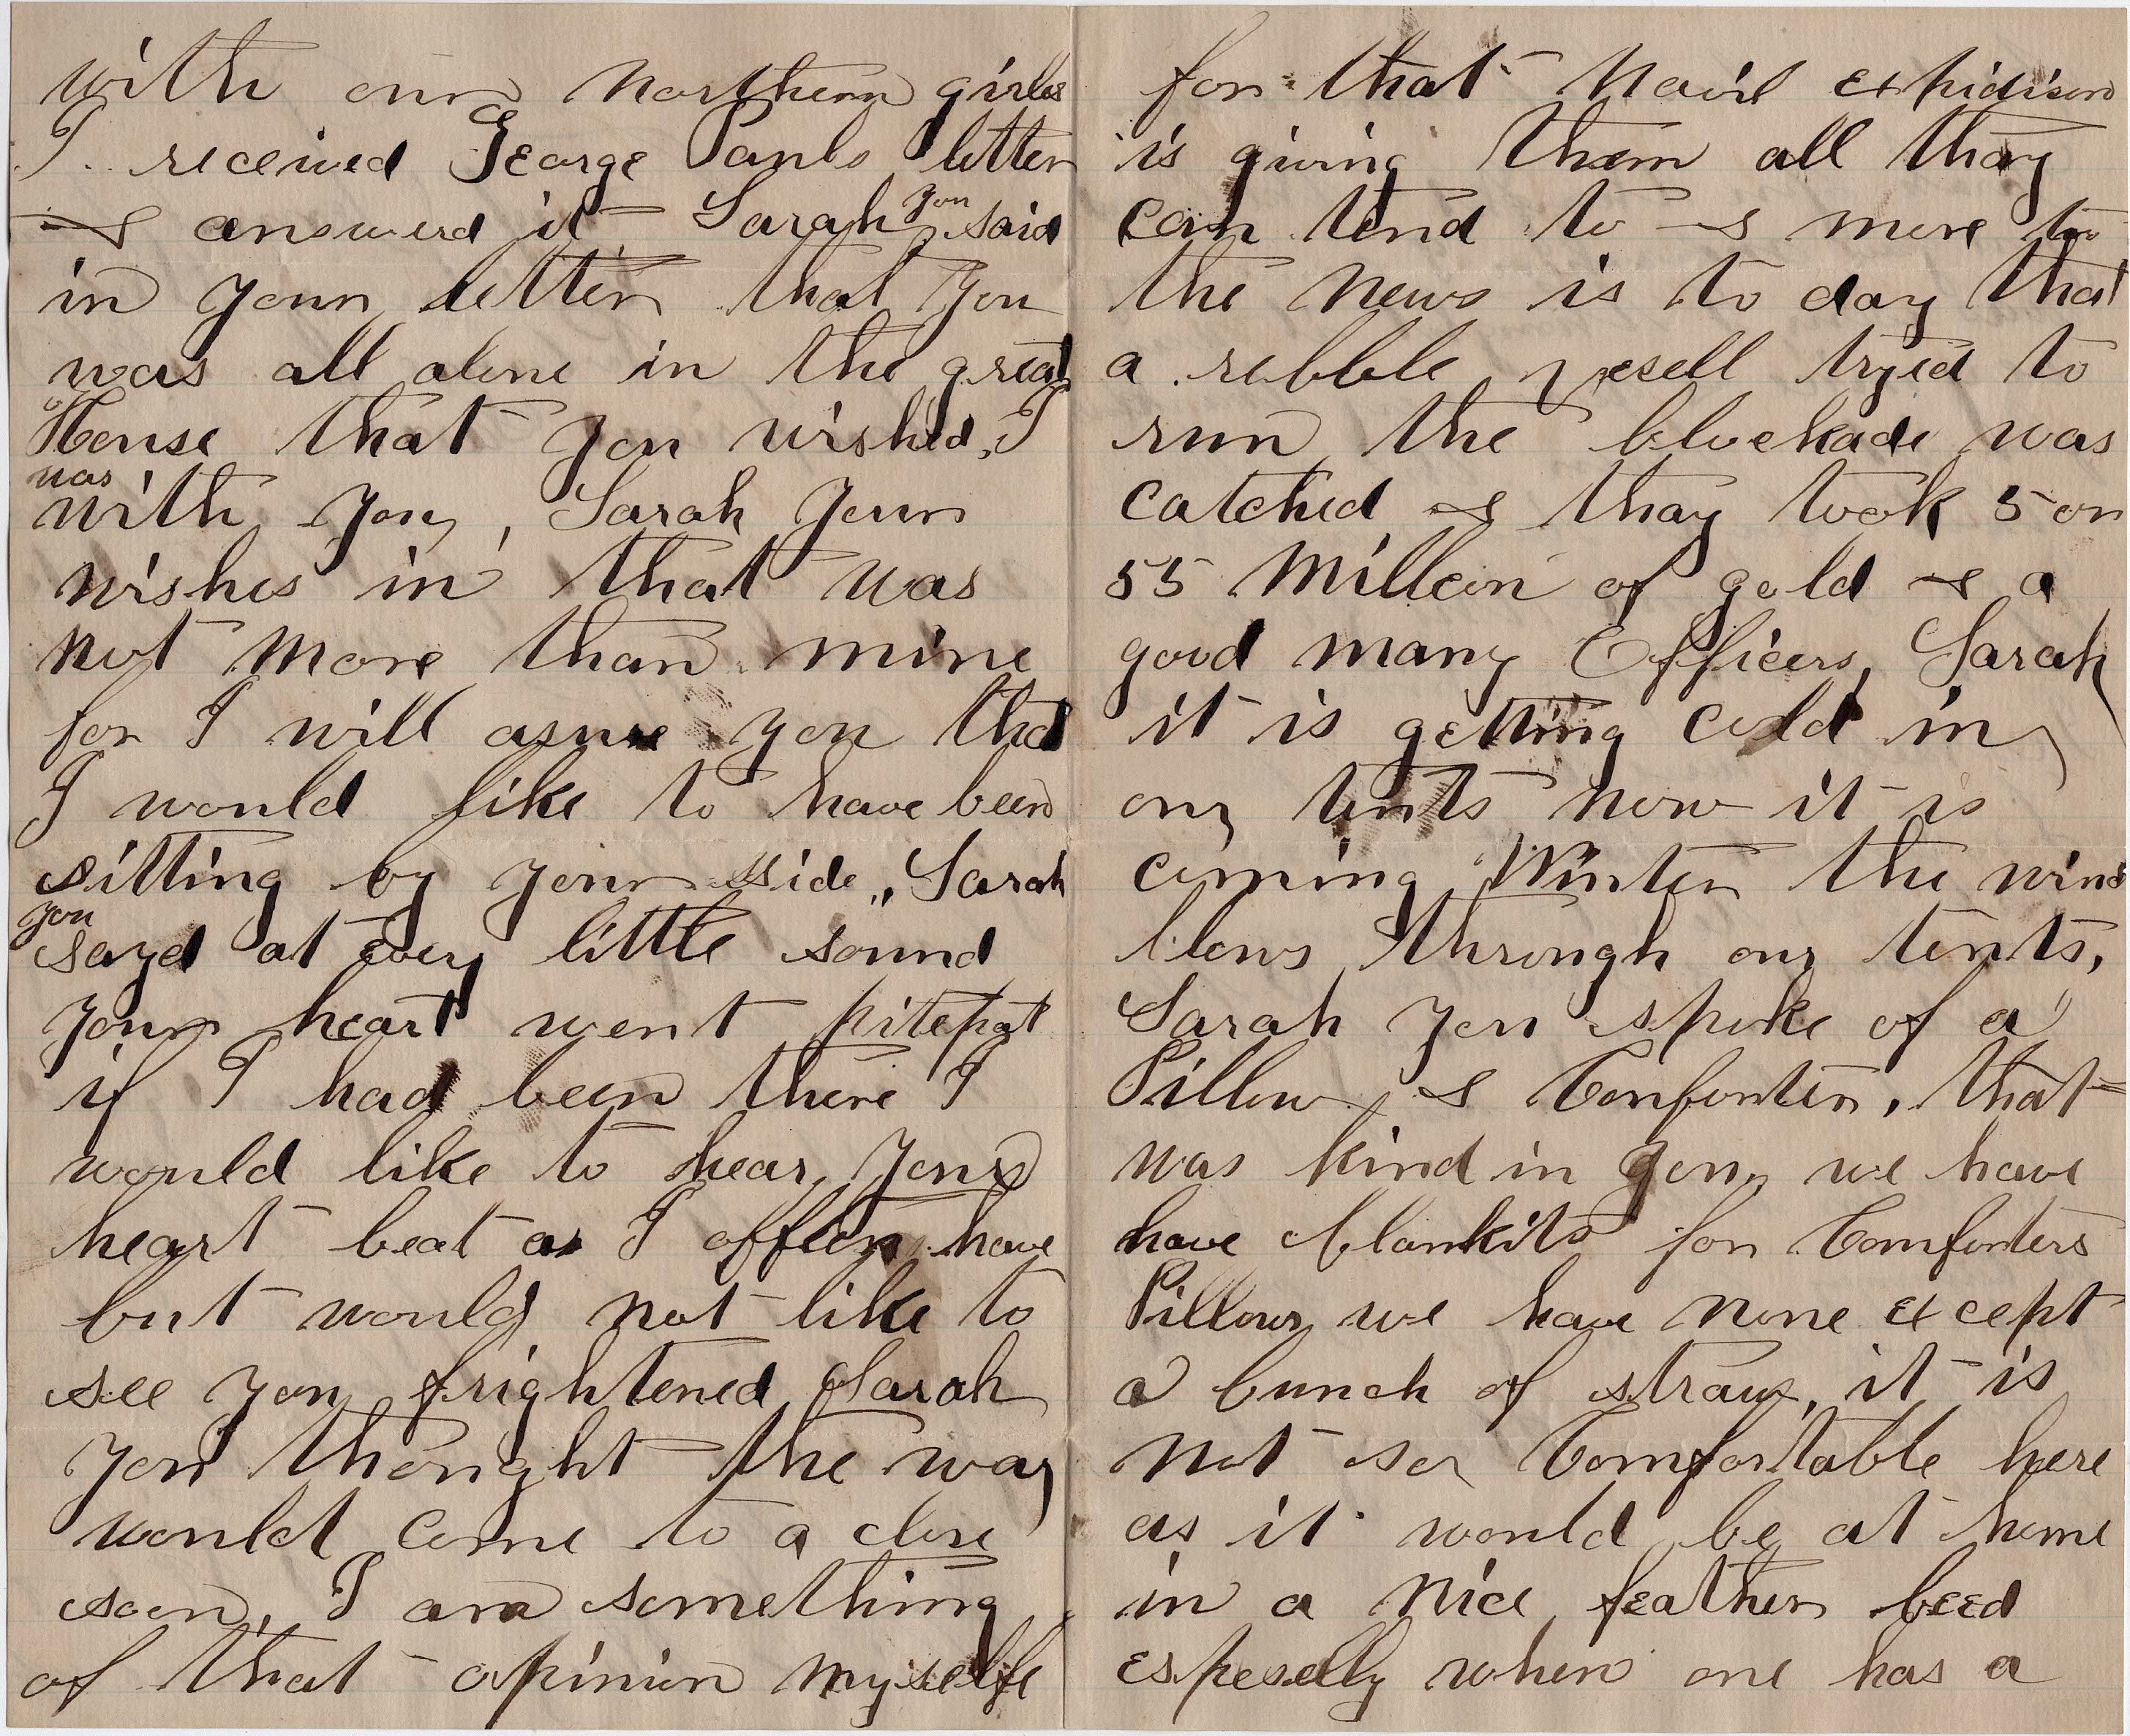 with our Northern girls
I received George Pauls letter
& answerd it Sarah you said
in your letter that you
was all alone in the great
House that you wished I
was
with you, Sarah your
wishes in that was
not more than mine
for I will asure you that
I would like to have been
sitting by your side, Sarah
you
sayd at every little sound
your heart went pitepat
if I had been there I
would like to hear your
heart beat as I offten have
but would not like to
see you frightened Sarah
you thought the war
would come to a close
soon, I am something
of that opinion myselfe
for that Navil expidision
is giving them all thay
can tend to & more to
the news is to day that
a rebble vesell tryed to
run the blockade was
catched & thay took 5 or
55 Million of gold & a
good many Officers, Sarah
it is getting cold in
our tents now it is
coming Winter the wind
blows through our tents,
Sarah you spoke of a
Pillow & Comforter, that
was kind in you, we have
have blankits for Comforters
Pillows we have none except
a bunch of straw, it is
not so Comfortable here
as it would be at home
in a nice feather beed
espeselly when one has a